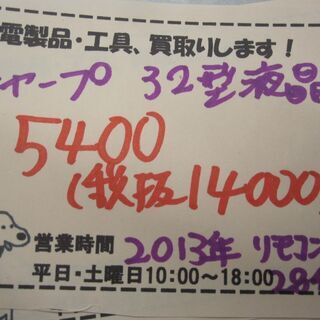 電製品・工具、買取りします！
ャープ 32型液晶
5400
(税抜14000
営業時間 2013年 リモコン
平日・土曜日10:00～18:00 284